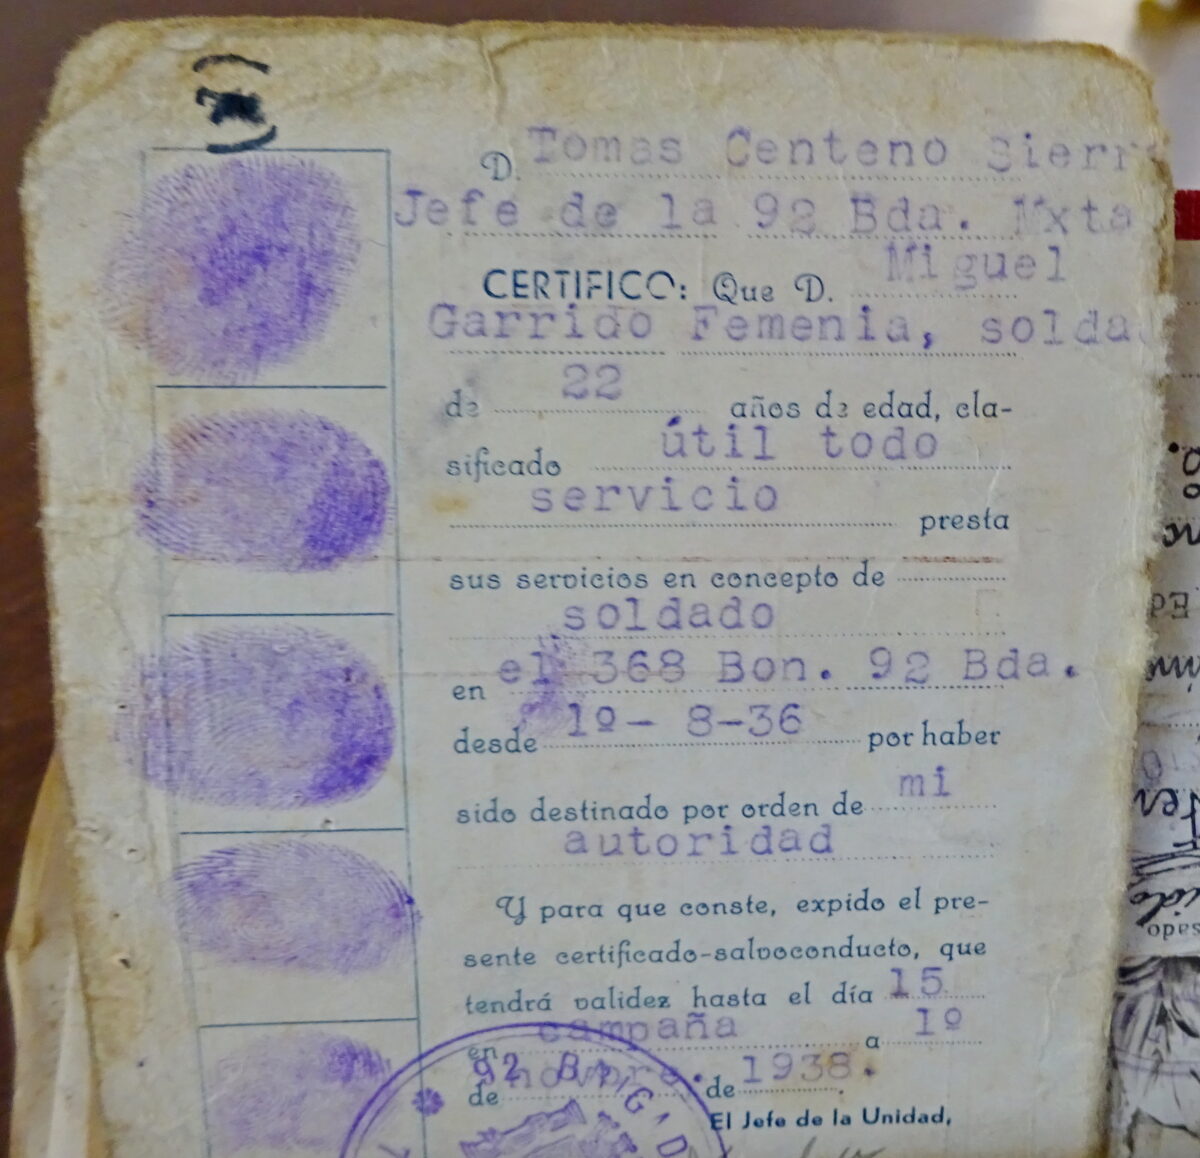 D. Tomas Centeno Sierr
Jefe de la 92 Bda. Mxta
CERTIFICO: Que D. Miguel
Garrido Femenia, solda
de 22 años de edad, cla-
sificado útil todo
servicio presta
sus servicios en concepto de
soldado
en el 368 Bon. 92 Bda.
desde 1º- 8-36 por haber
sido destinado por orden de mi
autoridad
Y para que conste, expido el pre-
sente certificado-salvoconducto, que
tendrá validez hasta el día 15
en campaña a 1º
de novbre. de 1938.
El Jefe de la Unidad,
92 BRIGAD